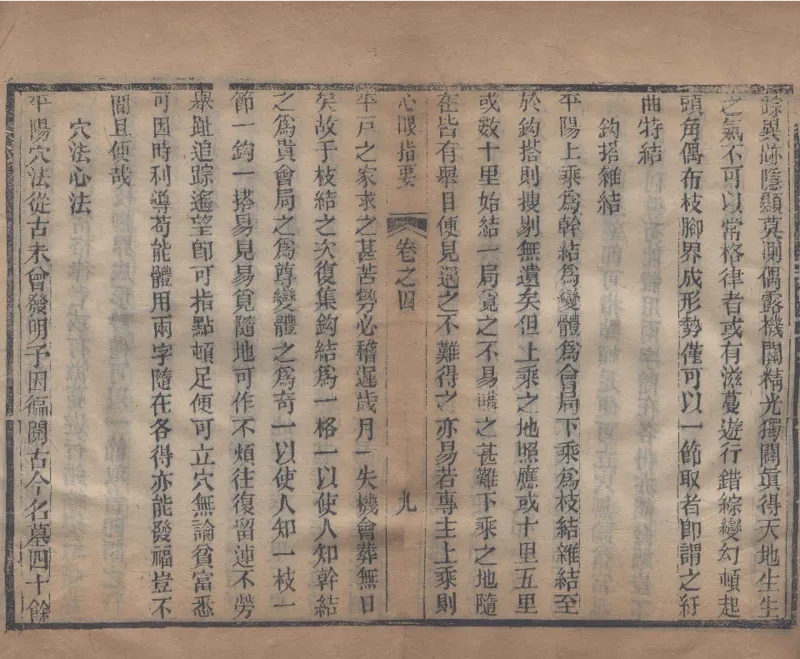 踪異跡隱顯莫測偶露機關精光獨闢眞得天地生生
之氣不可以常格律者或有滋蔓遊行錯綜變幻頓起
頭角偶布枝腳界成形勢僅可以一節取者卽謂之紆
曲特結
鈎搭雜結
平陽上乘爲幹結爲變體爲會局下乘爲枝結雜結至
於鈎搭則搜剔無遺矣但上乘之地照應或十里五里
或數十里始結一局覓之不易購之甚難下乘之地隨
在皆有舉目便見遇之不難得之亦易若專主上乘則
心眼指要
卷之四
九
平戸之家求之甚苦勢必稽遲歲月一失機會葬無日
矣故于枝結之次復集鈎結爲一格一以使人知幹結
之爲貴會局之爲尊變體之爲奇一以使人知一枝一
節一鈎一搭易見易覓隨地可作不煩往復留連不勞
舉趾追踪遙望卽可指點頓足便可立穴無論貧富悉
可因時利導苟能體用兩字隨在各得亦能發福豈不
簡且便哉
穴法心法
平陽穴法從古未曾發明予因徧閱古今名墓四十餘